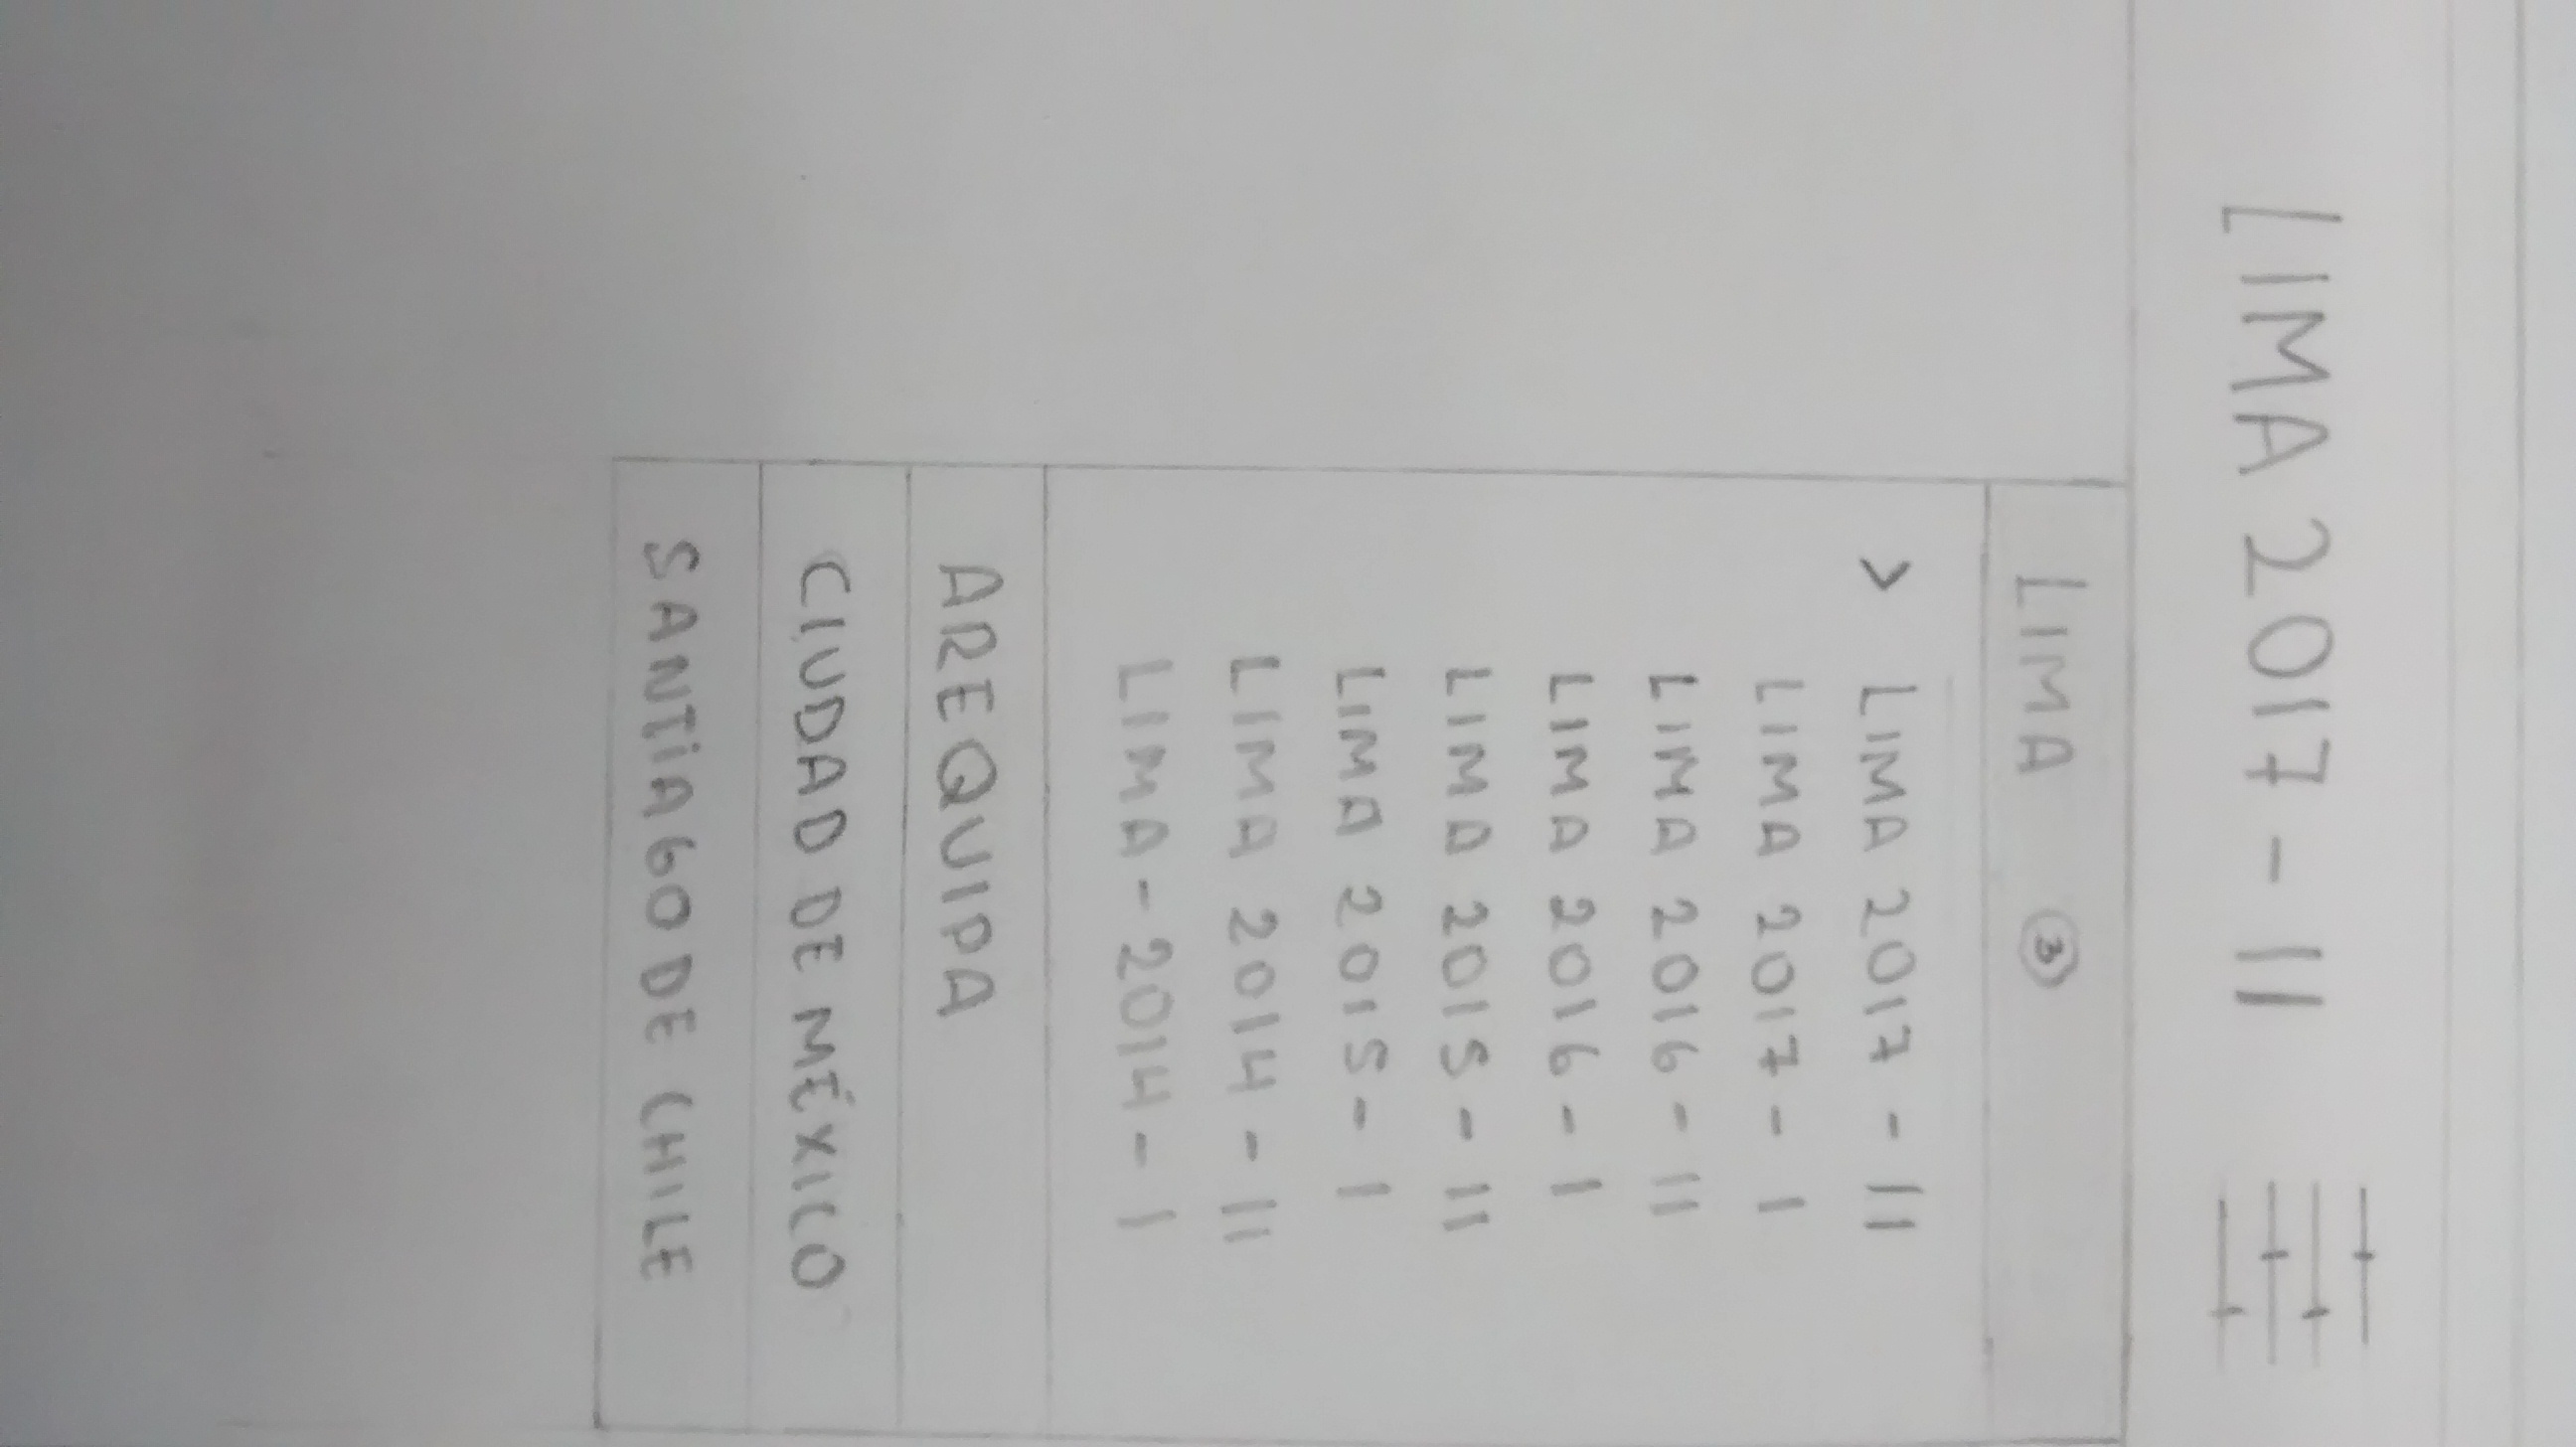 LIMA 2017 - II
LIMA 3
> LIMA 2017 - II
LIMA 2017 - I
LIMA 2016 - II
LIMA 2016 - I
LIMA 2015 - II
LIMA 2015 - I
LIMA 2014 - II
LIMA - 2014 - I
AREQUIPA
CIUDAD DE MÉXICO
SANTiAGO DE CHILE